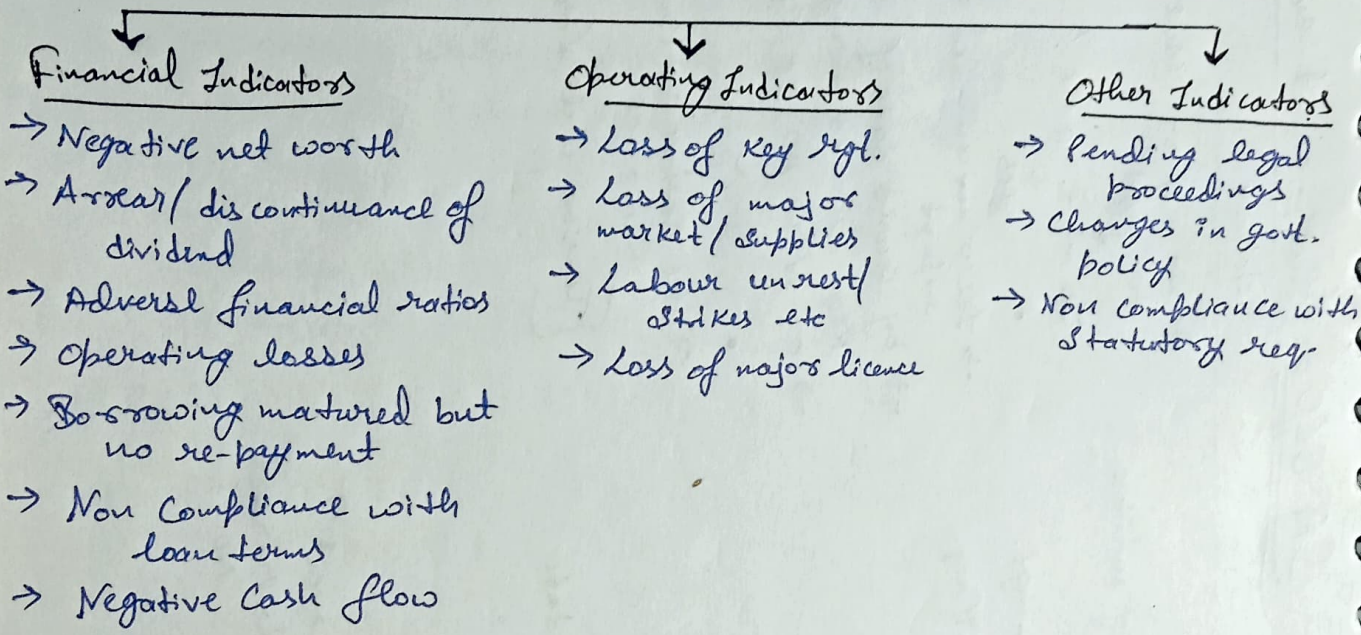 Financial Indicators
→ Negative net worth
→ Arrear/discontinuance of
dividend
→ Adverse financial ratios
→ Operating losses
→ Borrowing matured but
no re-payment
→ Non Compliance with
loan terms
→ Negative Cash flow
Operating Indicators
→ Loss of Key
→ Loss of major
market/supplies
→ Labour unrest/
strikes etc
→ Loss of major licence
Other Indicators
→ Pending legal
proceedings
→ Changes in govt.
policy
→ Non compliance with
Statutory req.